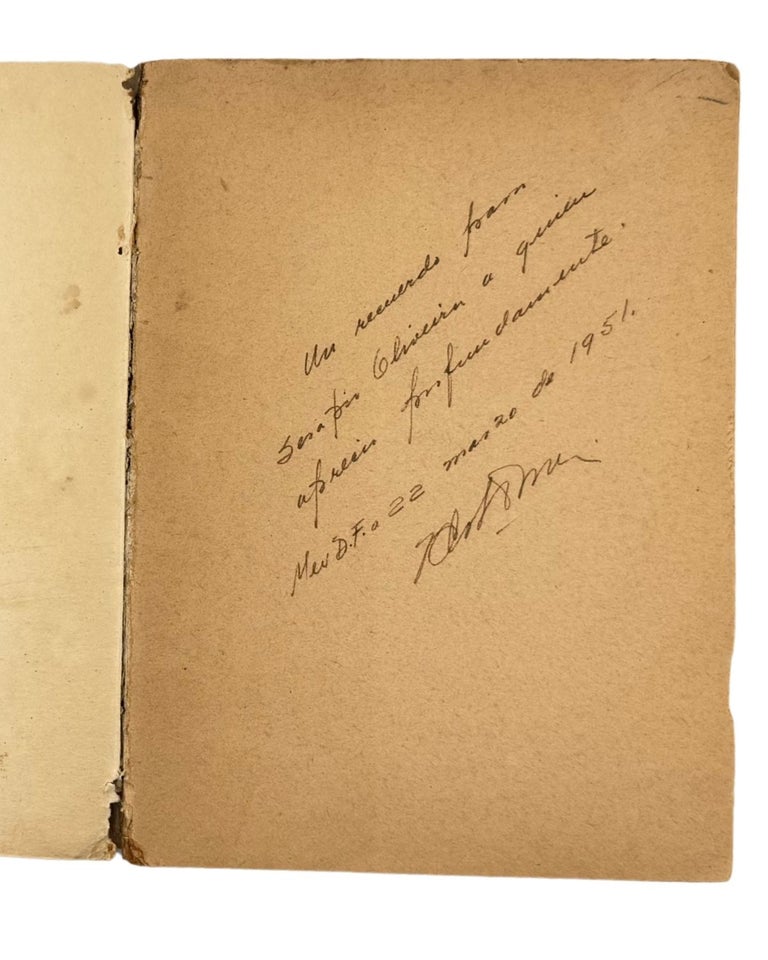 Un recuerdo para
Serafin Oliveira a quien
aprecio profundamente.
Mex D.F. a 22 marzo de 1951.